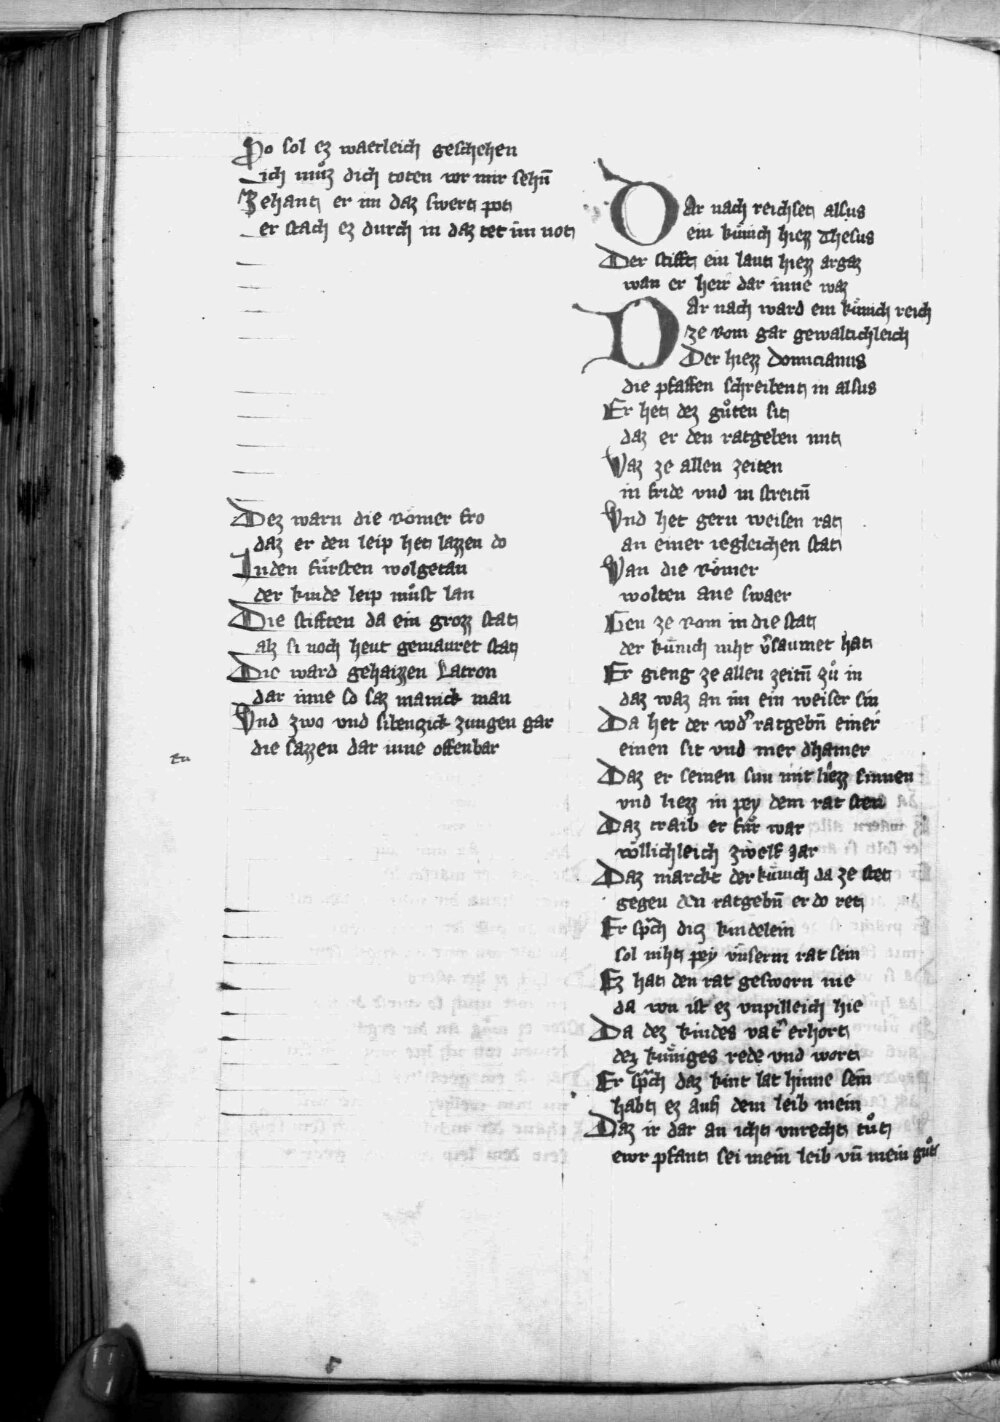 So sol ez waerleich geschehen
ich muͦz dich toten vor mir sehn̄
Zehant er im daz swert pot
er stach ez durch in daz tet im not
Dez warn die Romer fro
daz er den leip het lazzen do
Inden fuͤrsten wolgetan
der kinde leip muͦst lan
Die stifften da ein grozz stat
alz si noch heut gemauret stat
Die ward gehaizzen Latron
dar inne so saz manick man
Vnd zwo vnd sibenzick zungen gar
die sazzen dar inne offenbar
Dar nach reichset alsus
ein kuͤnich hiez Thesus
Der stifft ein laut hiezz argaz
wan er herr dar inne waz
Dar nach ward ein kuͤnich reich
ze Rom gar gewaltichleich
Der hiezz Domicianus
die pfaffen schreibent in alsus
Er het dez guͦten sit
daz er den ratgeben mit
Waz ze allen zeiten
in fride vnd in streitn̄
Vnd het gern weisen rat
an einer iegleichen stat
Wan die Roͤmer
wolten ane swaer
Gen ze Rom in die stat
der kuͤnich niht v͛saumet hat
Er gieng ze allen zeitn̄ zuͦ in
daz waz an im ein weiser sin
Da het der vod͛ ratgebn̄ einer
einen sit vnd mer dhainer
Daz er seinen sun mit siezz sinnen
vnd liezz in pey dem rat sten
Daz traib er fuͤr war
voͤllichleich zwelf jar
Daz marckt der kuͤnich da ze stet
gegen den ratgebn̄ er do ret
Er sp͛ch diz kindelein
sol niht pey vnserm rat sein
Ez hat den rat gesworn nie
da von ist ez vnpilleich hie
Da dez kindes vat͛ erhort
dez kuͤniges rede vnd wort
Er sp͛ch daz kint lat hinne sein
habt ez auf dem leib mein
Daz ir dar an icht vnrecht tuͦt
ewr pfant sei mein leib vn̄ mein guͦt